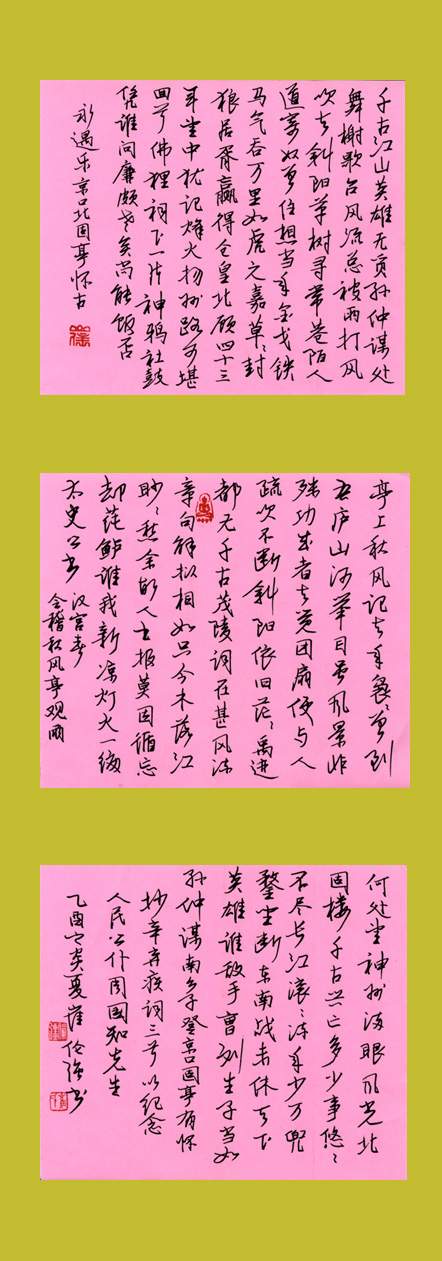 千古江山英雄无觅孙仲谋处
舞榭歌台风流总被雨打风
吹去斜阳草树寻常巷陌人
道寄奴曾住想当年金戈铁
马气吞万里如虎元嘉草々封
狼居胥赢得仓皇北顾四十三
年望中犹记烽火扬州路可堪
回首佛狸祠下一片神鸦社鼓
凭谁问廉颇老矣尚能饭否
永遇乐京口北固亭怀古
亭上秋风记去年袅々曾到
吾庐山河举目虽风景非
殊功成者去觉团扇便与人
疏吹不断斜阳依旧茫々禹迹
都无千古茂陵词在甚风流
章句解拟相如只今木落江
眇々愁余故人书报莫因循忘
却莼鲈谁我新凉灯火一编
太史公书 汉宫春
会稽秋风亭观雨
何处望神州满眼风光北
固楼千古兴亡多少事悠々
不尽长江滚々流年少万兜
鍪坐断东南战未休天下
英雄谁敌手曹刘生子当如
孙仲谋南乡子登京口固亭有怀
抄辛弃疾词三首以纪念
人民公仆周国知先生
乙酉炎夏崔伦强书